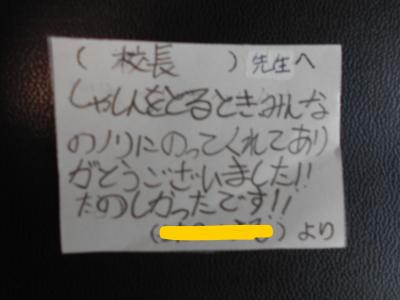 ( 校長 ) 先生へ
しゃしんをとるときみんな
のノリにのってくれてあり
がとうございました!!
たのしかったです!!
( ) より